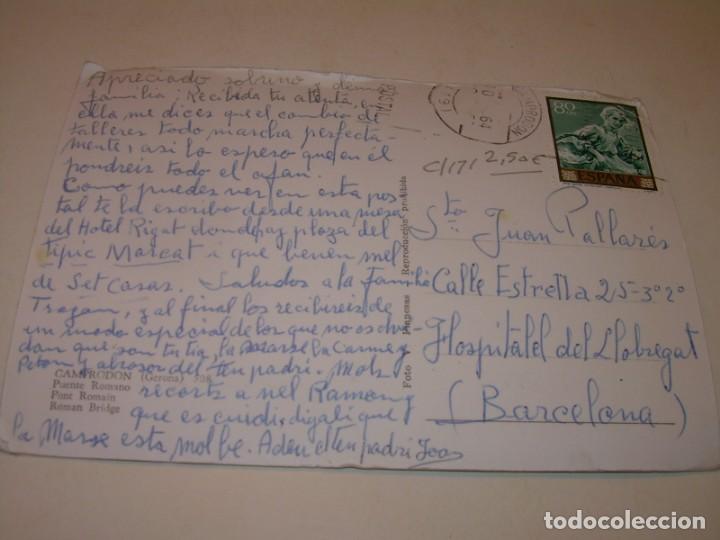 Apreciado sobrino y demas
familia: Recibida tu atenta, en
ella me dices que el cambio de
talleres todo marcha perfecta-
mente, asi lo espero que en el
pondreis todo el afan.
Como puedes ver en esta pos
tal te la escribo desde una mesa
del Hotel Rigat donde hay plaza del
tipic Marcat i que bienen mel
de Set Casas. Saludos a la familia
y al final los recibireis de
un modo especial de los que no os olvi-
dan que son tu tia, la Masse la Carmen y
Peton y abrosos del teu padri. Mols
CAMPRODON (Gerona) 528
Puente Romano
Pont Romain
Roman Bridge
recorts a nel Ramon y
que es cuidi, digali que
la Masse esta mol be. Adeu el teu padri Joan
POSTAL
Foto y Propiedad Reproducción prohibida
CAMPRODON
64
80
CTS
ESPAÑA
C/171 2,50€
Sto Juan Pallarés
Calle Estrella 25-3º 2º
Hospitalet del Llobregat
(Barcelona)
todocoleccion.net